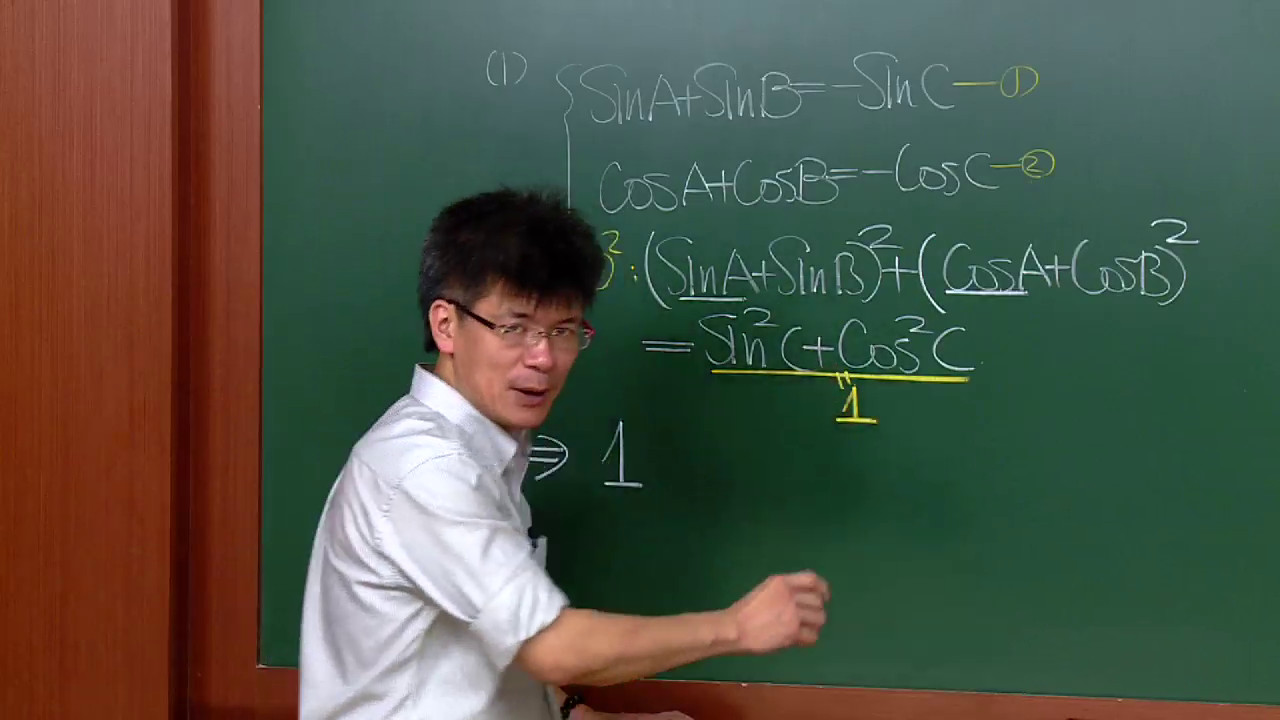 (1) SinA+SinB=-SinC—①
CosA+CosB=-CosC—②
)²:(SinA+SinB)²+(CosA+CosB)²
=Sin²C+Cos²C
1
⇒ 1